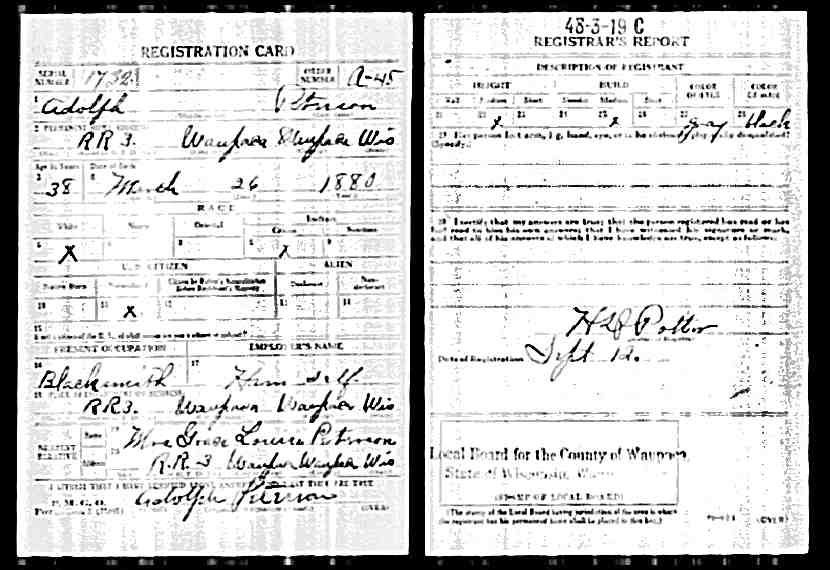 REGISTRATION CARD
SERIAL NUMBER 1732
ORDER NUMBER A-45
1 Adolph Peterson
2 PERMANENT HOME ADDRESS
RR 3. Waupaca Waupaca Wis
Age in Years Date of Birth
3 38 4 March 26 1880
RACE
White Negro Oriental Indian
Citizen Noncitizen
5 X 6 7 8 X 9
U. S. CITIZEN ALIEN
Native Born Naturalized Citizen by Father's Naturalization Before Registrant's Majority Declarant Non-declarant
10 11 X 12 13 14
15
PRESENT OCCUPATION EMPLOYER'S NAME
16 Blacksmith 17 Him self
RR3. Waupaca Waupaca Wis
NEAREST RELATIVE Name Mrs Grace Louisa Peterson
Address R.R. 3 Waupaca Waupaca Wis
I AFFIRM THAT I HAVE VERIFIED ABOVE ANSWERS AND THAT THEY ARE TRUE
P. M. G. O.
Adolph Peterson
(OVER)
48-3-19 C
REGISTRAR'S REPORT
DESCRIPTION OF REGISTRANT
HEIGHT BUILD COLOR OF EYES COLOR OF HAIR
Tall Medium Short Slender Medium Stout
21 22 x 23 24 25 x 26 27 gray 28 black
29 Has person lost arm, leg, hand, eye, or is he obviously physically disqualified? (Specify.)
30 I certify that my answers are true; that the person registered has read or has had read to him his own answers; that I have witnessed his signature or mark, and that all of his answers of which I have knowledge are true, except as follows:
H D Potter
Date of Registration Sept 12.
Local Board for the County of Waupaca,
State of Wisconsin,
(STAMP OF LOCAL BOARD)
(The stamp of the Local Board having jurisdiction of the area in which the registrant has his permanent home shall be placed in this box.)
(OVER)